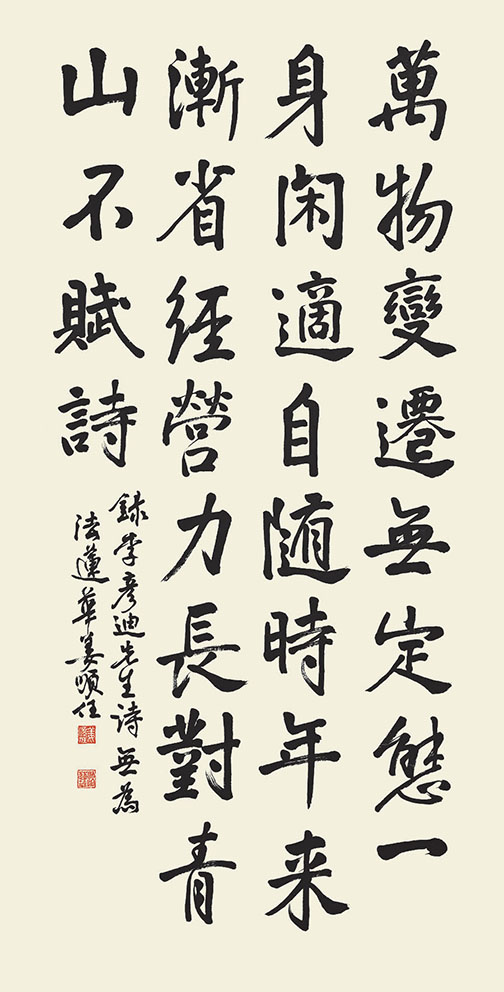 萬物變遷無定態一
身閑適自随時年来
漸省經營力長對青
山不賦詩
録李彦迪先生詩無為
法蓮華姜順任